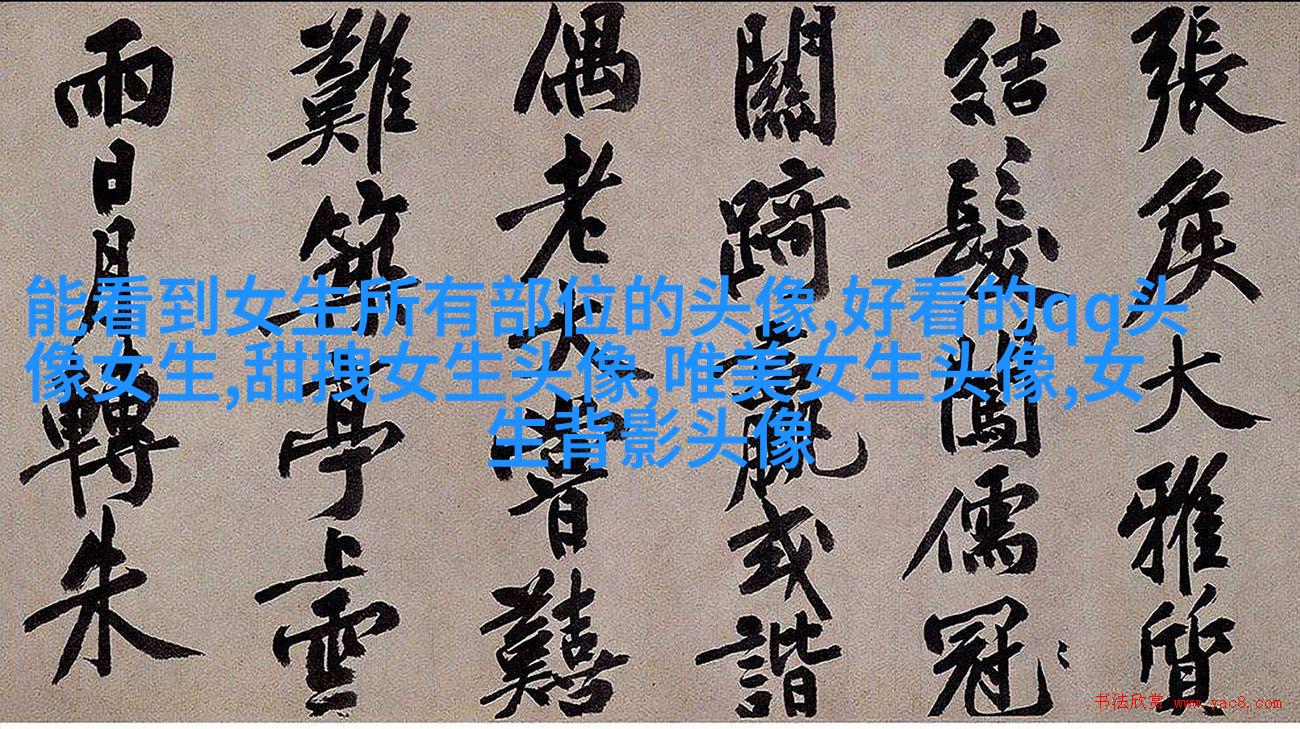 張矦大雅質
結髮闖儒冠
關踦或諧
偶老大囏
難築亭上雲
雨日月轉朱
能看到女生所有部位的头像,好看的qq头
像女生,甜拽女生头像,唯美女生头像,女
生背影头像
书法欣赏 www.yac8.com